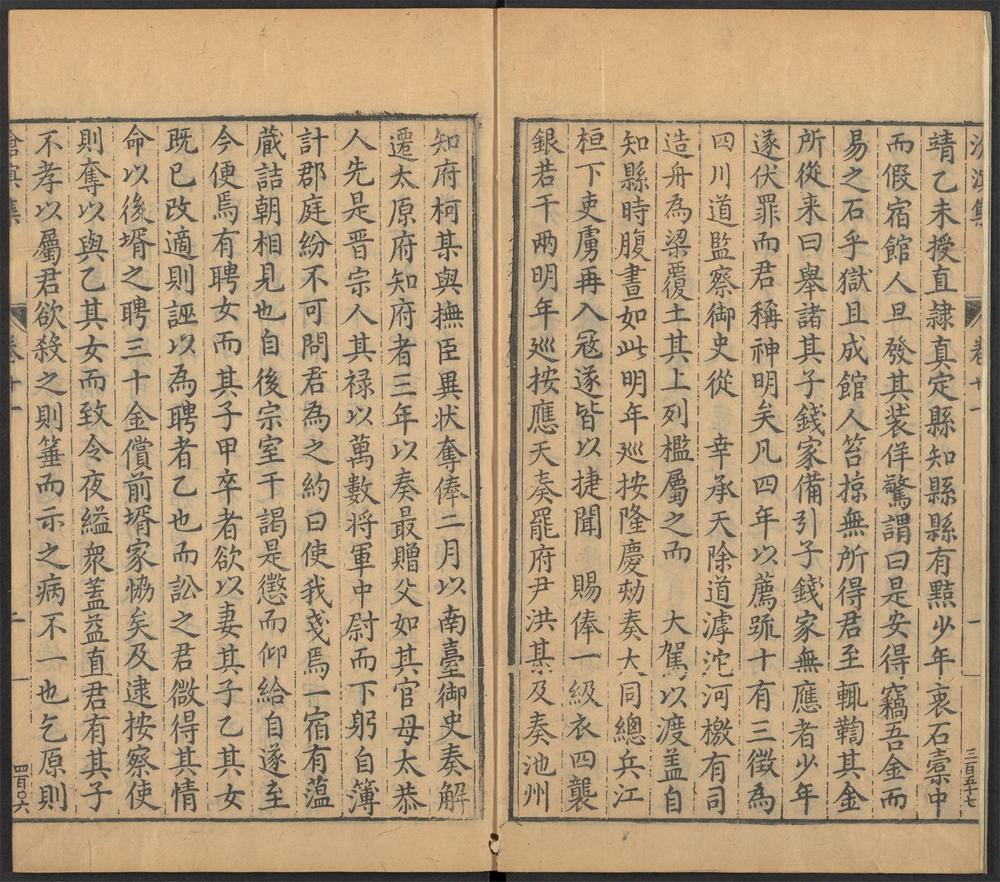 卷十一
一
三百五十七
靖乙未授直隷真定縣知縣縣有黠少年衷石橐中
而假宿館人旦發其裝佯驚謂曰是安得竊吾金而
易之石乎獄且成館人笞掠無所得君至輒鞫其金
所從来曰舉諸其子錢家備引子錢家無應者少年
遂伏罪而君稱神明矣凡四年以薦䟽十有三徵為
四川道監察御史從 幸承天除道滹沱河檄有司
造舟為梁覆土其上列檻屬之而 大駕以渡盖自
知縣時腹畫如此明年巡按隆慶劾奏大同總兵江
桓下吏虜再入冦遂皆以捷聞 賜俸一級衣四襲
銀若干兩明年廵按應天奏罷府尹洪某及奏池州
知府柯某與撫臣異状奪俸二月以南臺御史奏解
遷太原府知府者三年以奏最贈父如其官母太恭
人先是晋宗人其禄以萬數将軍中尉而下躬自簿
計郡庭紛不可問君為之約曰使我戔焉一宿有薀
蔵詰朝相見也自後宗室干謁是懲而仰給自遂至
今便焉有聘女而其子甲卒者欲以妻其子乙其女
既已改適則誣以為聘者乙也而訟之君微得其情
命以後壻之聘三十金償前壻家恊矣及逮按察使
則奪以與乙其女而致令夜縊衆盖益直君有其子
不孝以屬君欲殺之則箠而示之病不一也乞原則
卷十一
二
四百〇六